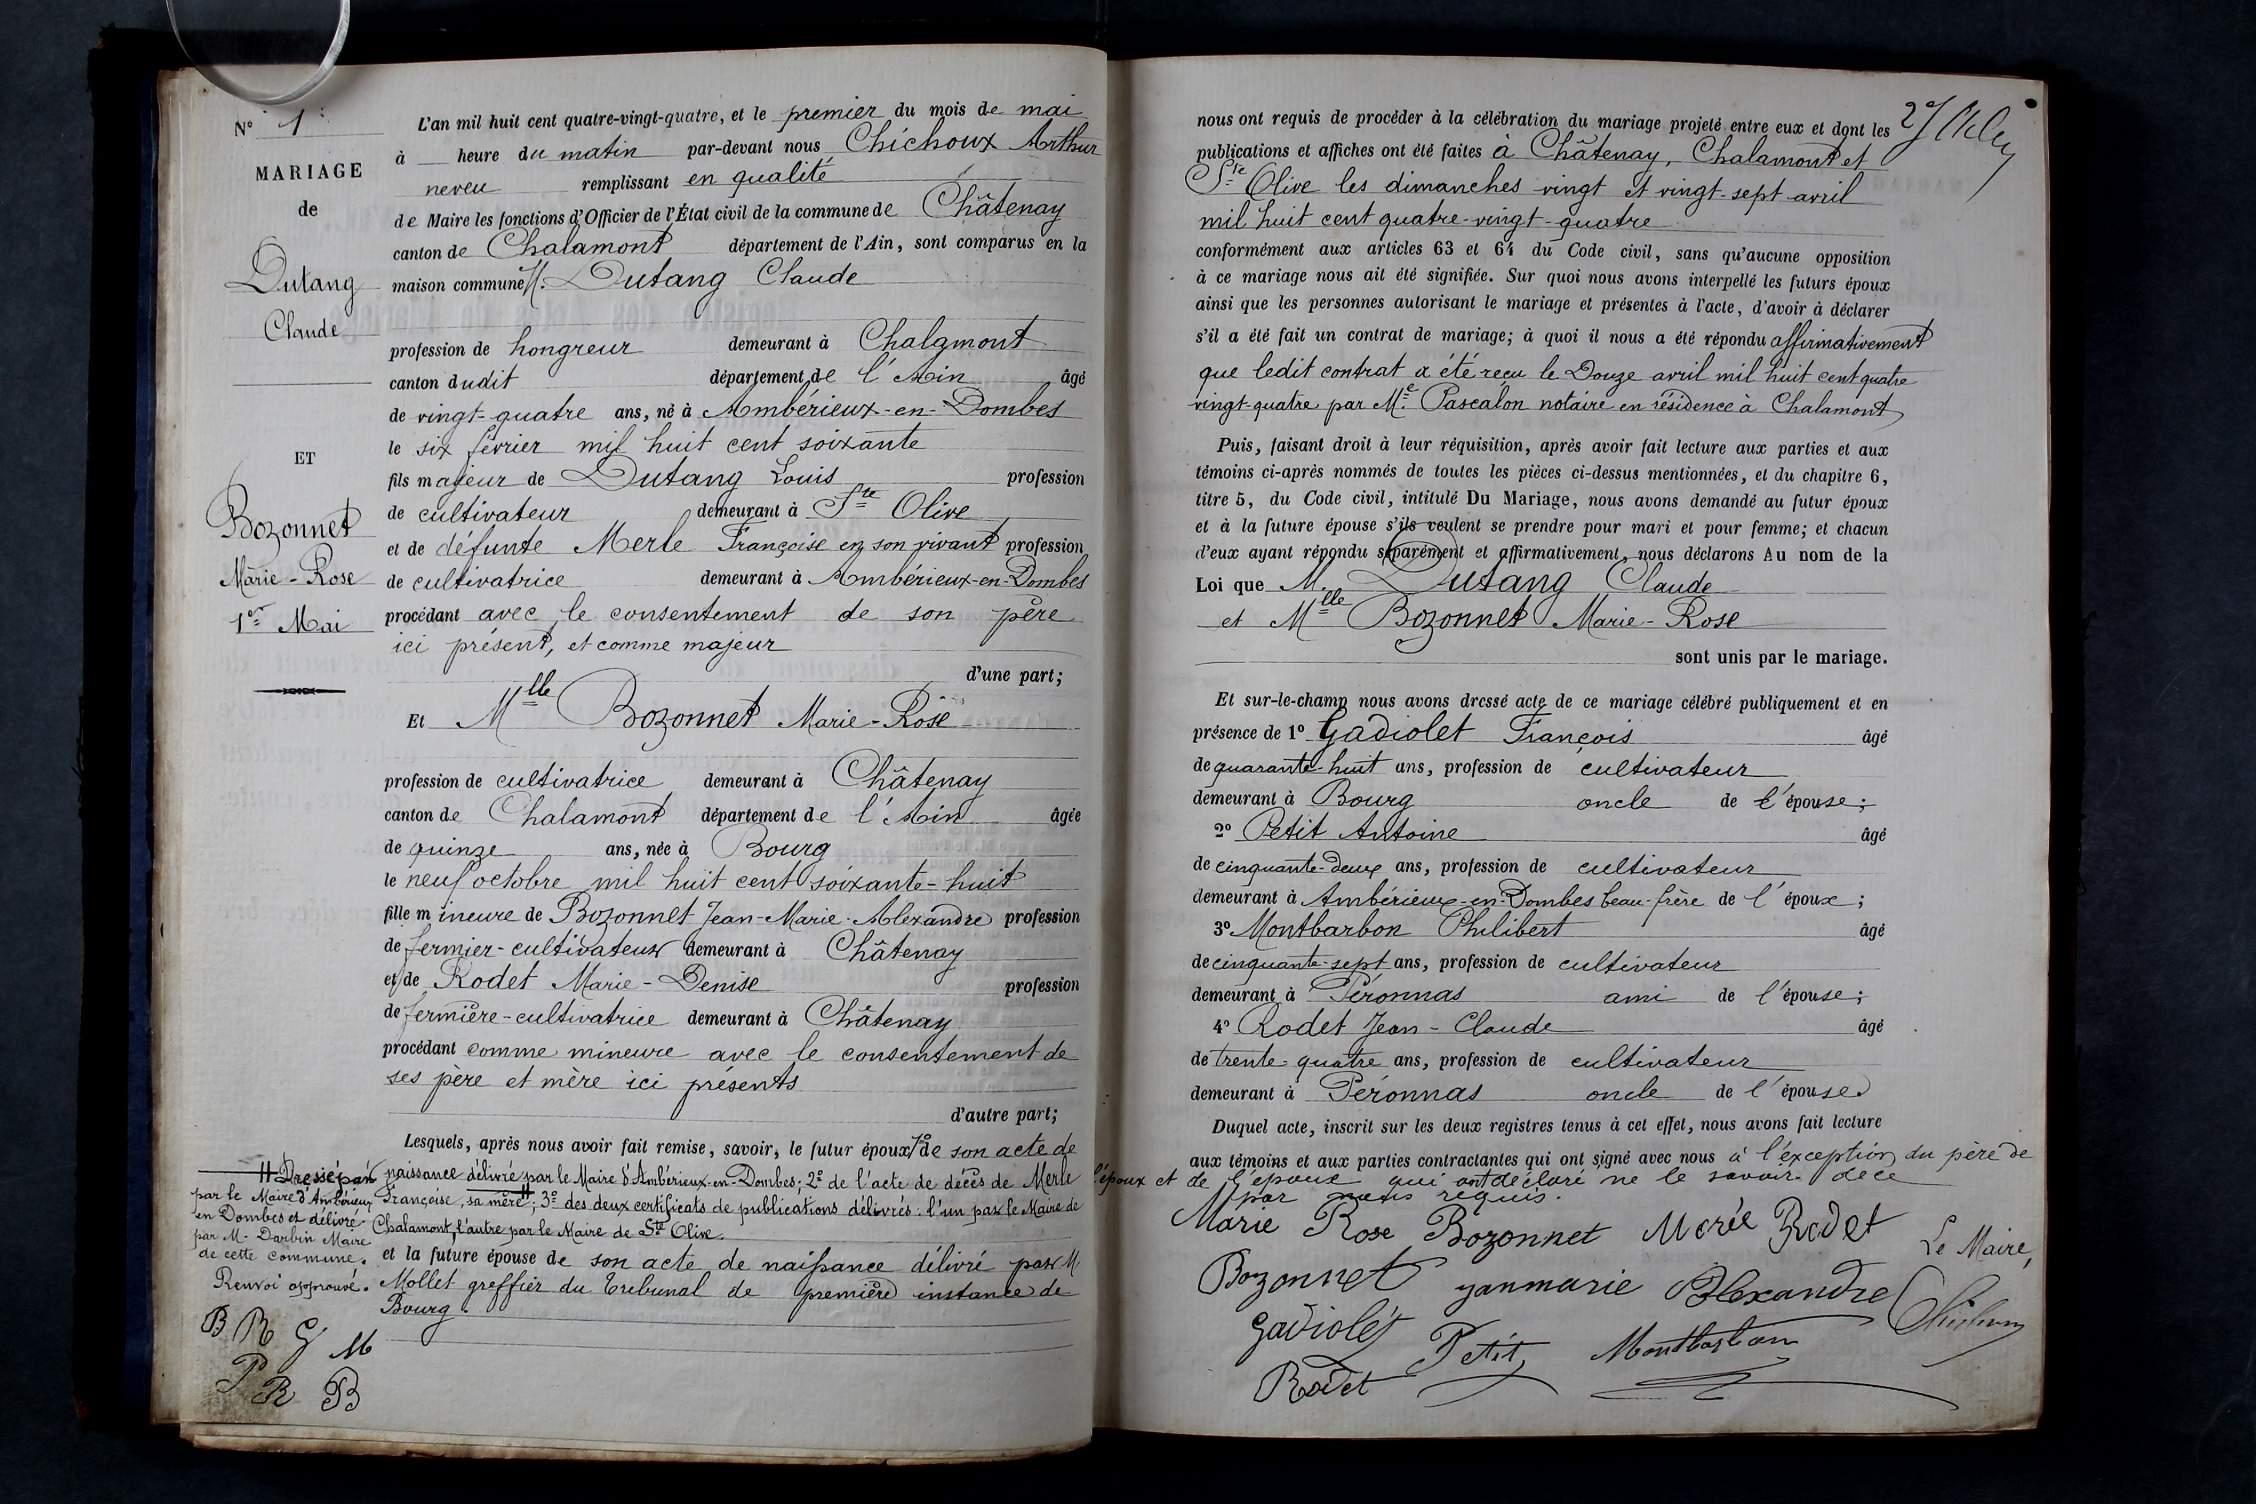 N° 1
MARIAGE
de
Dutang
Claude
ET
Bozonnet
Marie-Rose
1er Mai
L'an mil huit cent quatre-vingt-quatre, et le premier du mois de mai
à heure du matin par-devant nous Chichoux Arthur
neveu remplissant en qualité
de Maire les fonctions d'Officier de l'État civil de la commune de Châtenay
canton de Chalamont département de l'Ain, sont comparus en la
maison commune M. Dutang Claude
profession de hongreur demeurant à Chalamont
canton dudit département de l'Ain âgé
de vingt-quatre ans, né à Ambérieux-en-Dombes
le six février mil huit cent soixante
fils majeur de Dutang Louis profession
de cultivateur demeurant à Ste Olive
et de défunte Merle Françoise en son vivant profession
de cultivatrice demeurant à Ambérieux-en-Dombes
procédant avec le consentement de son père
ici présent, et comme majeur
d'une part;
Et Mlle Bozonnet Marie-Rose
profession de cultivatrice demeurant à Châtenay
canton de Chalamont département de l'Ain âgée
de quinze ans, née à Bourg
le neuf octobre mil huit cent soixante-huit
fille mineure de Bozonnet Jean-Marie-Alexandre profession
de fermier-cultivateur demeurant à Châtenay
et de Rodet Marie-Denise profession
de fermière-cultivatrice demeurant à Châtenay
procédant comme mineure avec le consentement de
ses père et mère ici présents
d'autre part;
Lesquels, après nous avoir fait remise, savoir, le futur époux 1° de son acte de
naissance délivré par le Maire d'Ambérieux-en-Dombes; 2° de l'acte de décès de Merle
Françoise, sa mère #; 3° des deux certificats de publications délivrés: l'un par le Maire de
Chalamont, l'autre par le Maire de Ste Olive.
et la future épouse de son acte de naissance délivré par M
Mollet greffier du Tribunal de première instance de
Bourg.
# Dressé par
par le Maire d'Ambérieux
en Dombes et délivré
par M. Darbin Maire
de cette commune.
Renvoi approuvé.
B R G M
P R B
nous ont requis de procéder à la célébration du mariage projeté entre eux et dont les
publications et affiches ont été faites à Châtenay, Chalamont et
Ste Olive les dimanches vingt et vingt-sept avril
mil huit cent quatre-vingt-quatre
conformément aux articles 63 et 64 du Code civil, sans qu'aucune opposition
à ce mariage nous ait été signifiée. Sur quoi nous avons interpellé les futurs époux
ainsi que les personnes autorisant le mariage et présentes à l'acte, d'avoir à déclarer
s'il a été fait un contrat de mariage; à quoi il nous a été répondu affirmativement
que ledit contrat a été reçu le Douze avril mil huit cent quatre
vingt-quatre par Me. Pascalon notaire en résidence à Chalamont
Puis, faisant droit à leur réquisition, après avoir fait lecture aux parties et aux
témoins ci-après nommés de toutes les pièces ci-dessus mentionnées, et du chapitre 6,
titre 5, du Code civil, intitulé Du Mariage, nous avons demandé au futur époux
et à la future épouse s'ils veulent se prendre pour mari et pour femme; et chacun
d'eux ayant répondu séparément et affirmativement, nous déclarons Au nom de la
Loi que M. Dutang Claude
et Mlle Bozonnet Marie-Rose
sont unis par le mariage.
Et sur-le-champ nous avons dressé acte de ce mariage célébré publiquement et en
présence de 1° Gadiolet François âgé
de quarante-huit ans, profession de cultivateur
demeurant à Bourg oncle de l'épouse;
2° Petit Antoine âgé
de cinquante-deux ans, profession de cultivateur
demeurant à Ambérieux-en-Dombes beau-frère de l'époux;
3° Montbarbon Philibert âgé
de cinquante-sept ans, profession de cultivateur
demeurant à Péronnas ami de l'épouse;
4° Rodet Jean-Claude âgé
de trente-quatre ans, profession de cultivateur
demeurant à Péronnas oncle de l'épouse
Duquel acte, inscrit sur les deux registres tenus à cet effet, nous avons fait lecture
aux témoins et aux parties contractantes qui ont signé avec nous à l'exception du père de
l'époux et de l'époux qui ont déclaré ne le savoir de ce
par nous requis.
Marie Rose Bozonnet Marie Rodet
Le Maire,
Bozonnet yanmarie Alexandre
Gadiolet Petit Montbarbon
Rodet